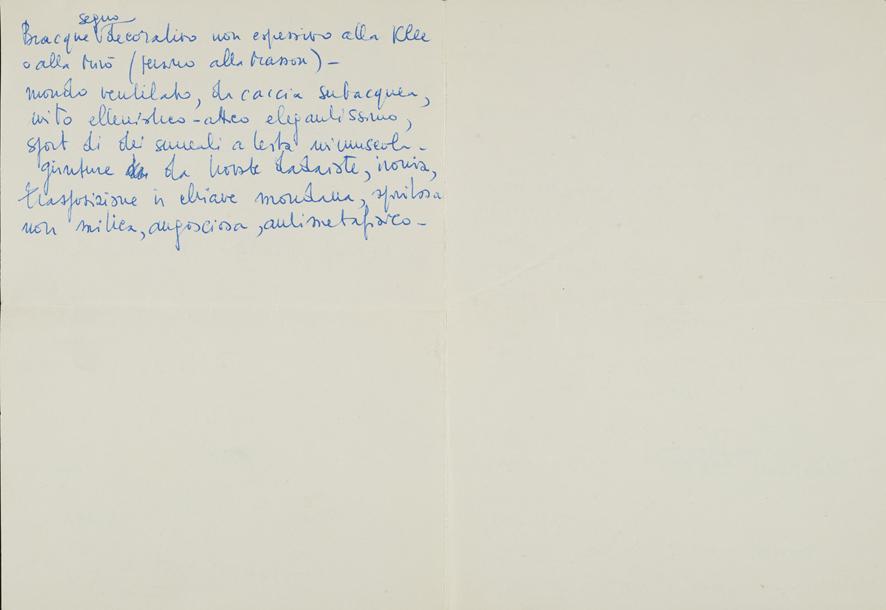 segno
Bracque decorativo non espressivo alla Klee
o alla Mirò (persino alla Masson) –
mondo ventilato, da caccia subacquea,
mito ellenistico-atteo elegantissimo,
sport di dei surreali a testa minuscola –
giunture da dadaiste, ironia,
trasposizione in chiave mondana, spiritosa
non mitica, angosciosa, antimetafisico –